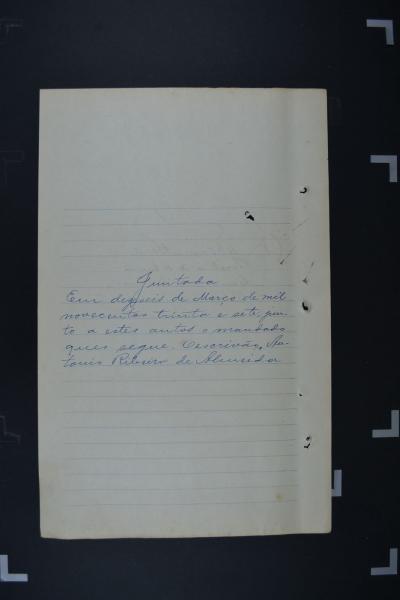 Juntada
Em dezeseis de Março de mil
novecentos trinta e sete, jun-
to a estes autos o mandado
que segue. O escrivão, An-
tonio Ribeiro de Almeida